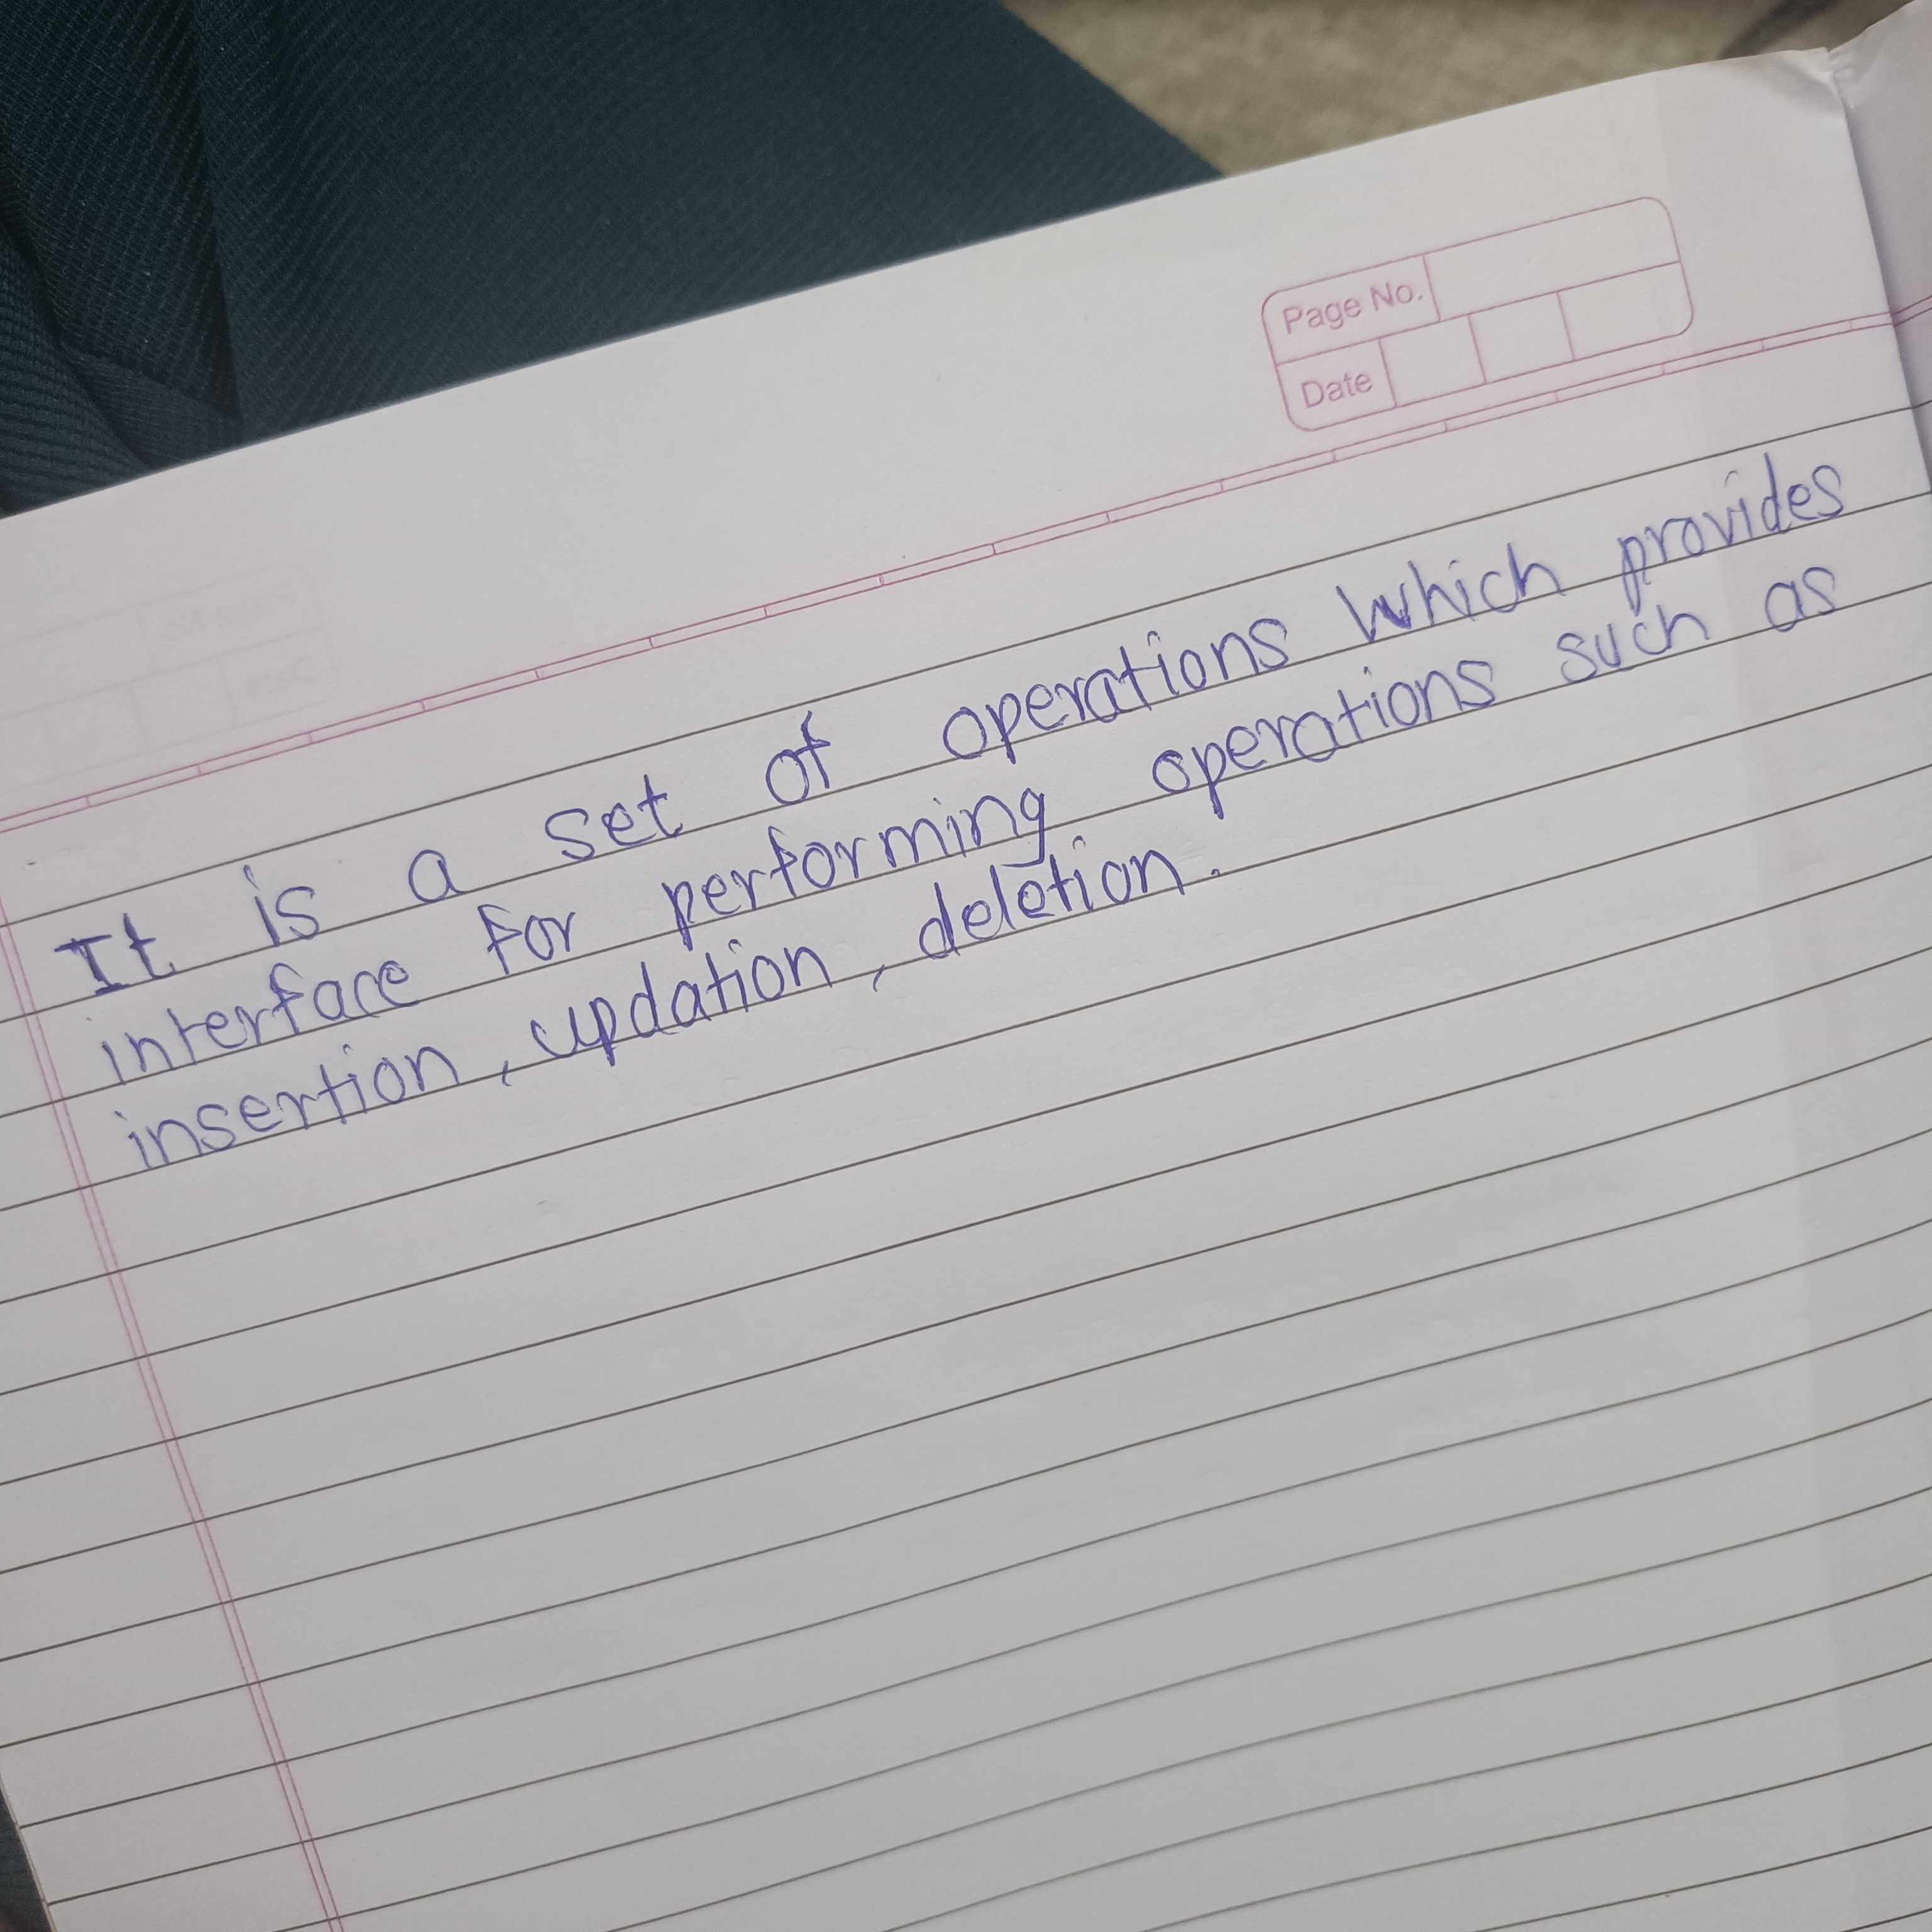 Page No.
Date
It is a set of operations which provides
interface for performing operations such as
insertion, updation, deletion.